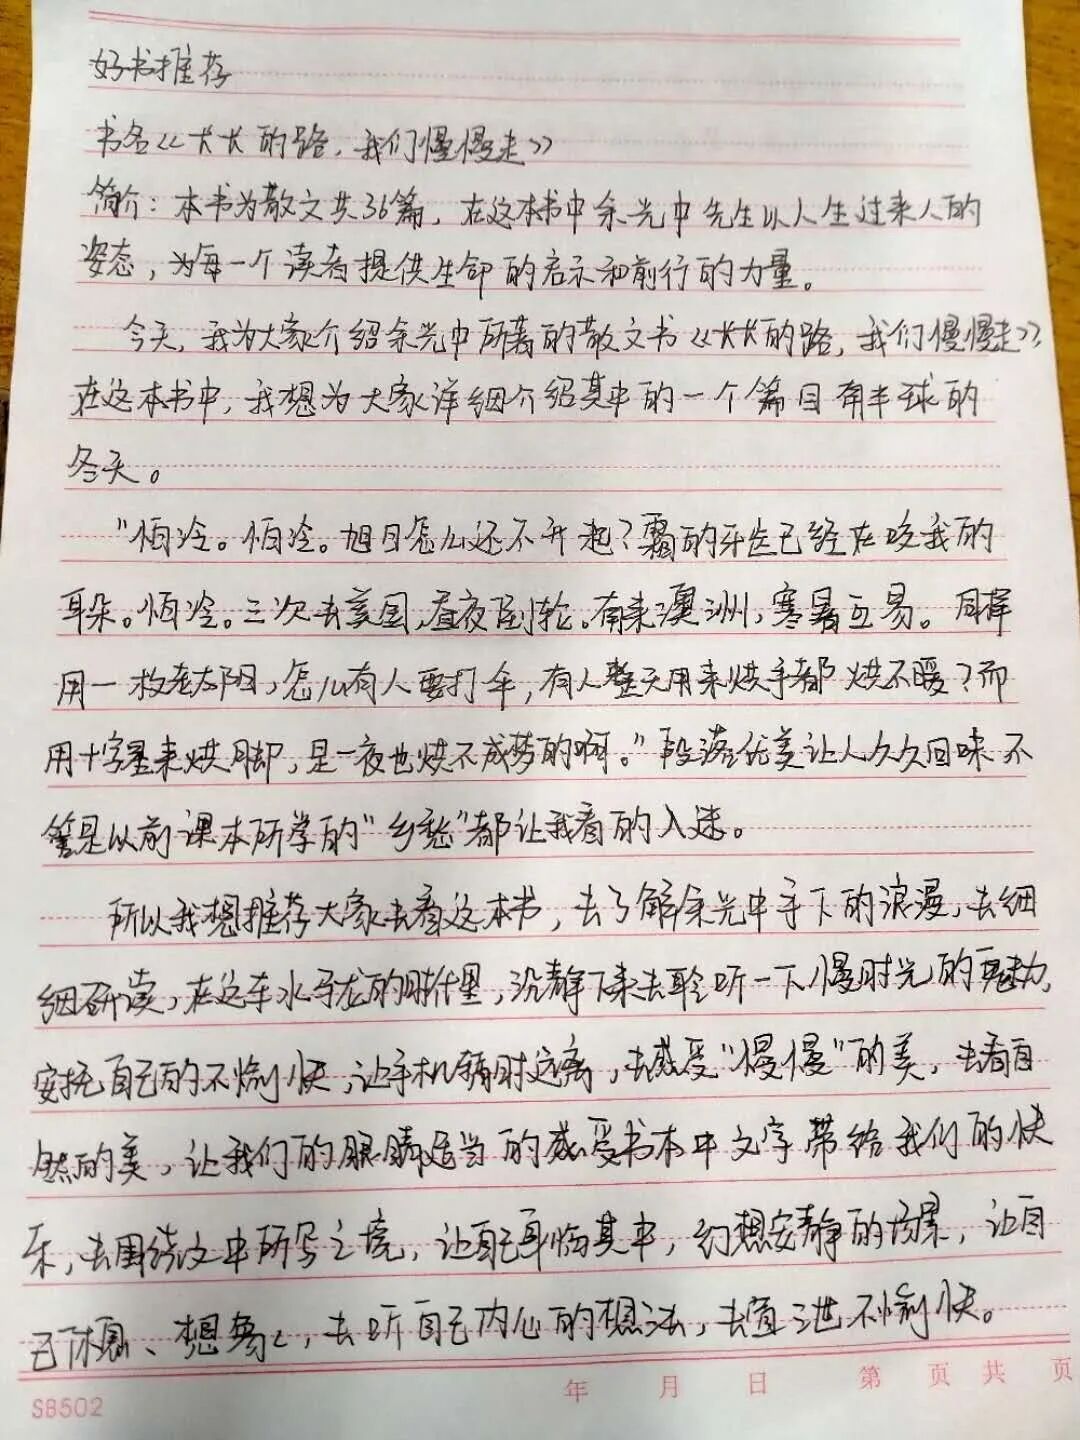 好书推荐
书名《长长的路,我们慢慢走》
简介:本书为散文共36篇,在这本书中余光中先生以人生过来人的
姿态,为每一个读者提供生命的启示和前行的力量。
今天,我为大家介绍余光中所著的散文书《长长的路,我们慢慢走》
在这本书中,我想为大家详细介绍其中的一个篇目南半球的
冬天。
"怕冷。怕冷。旭日怎么还不升起?霜的牙齿已经在咬我的
耳朵。怕冷。三次去美国,昼夜倒轮。南来澳洲,寒暑互易。同样
用一枚老太阳,怎么有人要打伞,有人整天用来烘手都烘不暖?而
用十字星来烘脚,是一夜也烘不成梦的啊。"段落优美让人久久回味不
管是以前课本所学的"乡愁"都让我看的入迷。
所以我想推荐大家去看这本书,去了解余光中手下的浪漫,去细
细研读,在这车水马龙的时代里,沉静下来去聆听一下慢时光的魅力,
安抚自己的不愉快,让手机暂时远离,去感受"慢慢"的美,去看自
然的美,让我们的眼睛适当的感受书本中文字带给我们的快
乐,去围绕文中所写之境,让自己身临其中,幻想安静的场景,让自
己休息、想象,去听自己内心的想法,去宣泄不愉快。
年 月 日 第 页 共 页
SB502